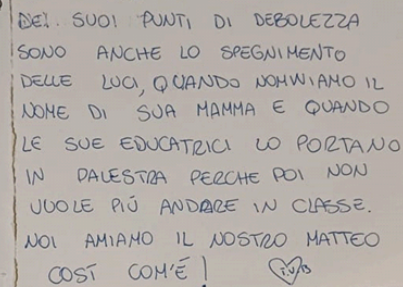 DEI SUOI PUNTI DI DEBOLEZZA
SONO ANCHE LO SPEGNIMENTO
DELLE LUCI, QUANDO NOMINIAMO IL
NOME DI SUA MAMMA E QUANDO
LE SUE EDUCATRICI LO PORTANO
IN PALESTRA PERCHE POI NON
VUOLE PIÚ ANDARE IN CLASSE.
NOI AMIAMO IL NOSTRO MATTEO
COSÌ COM'É! T.V.B